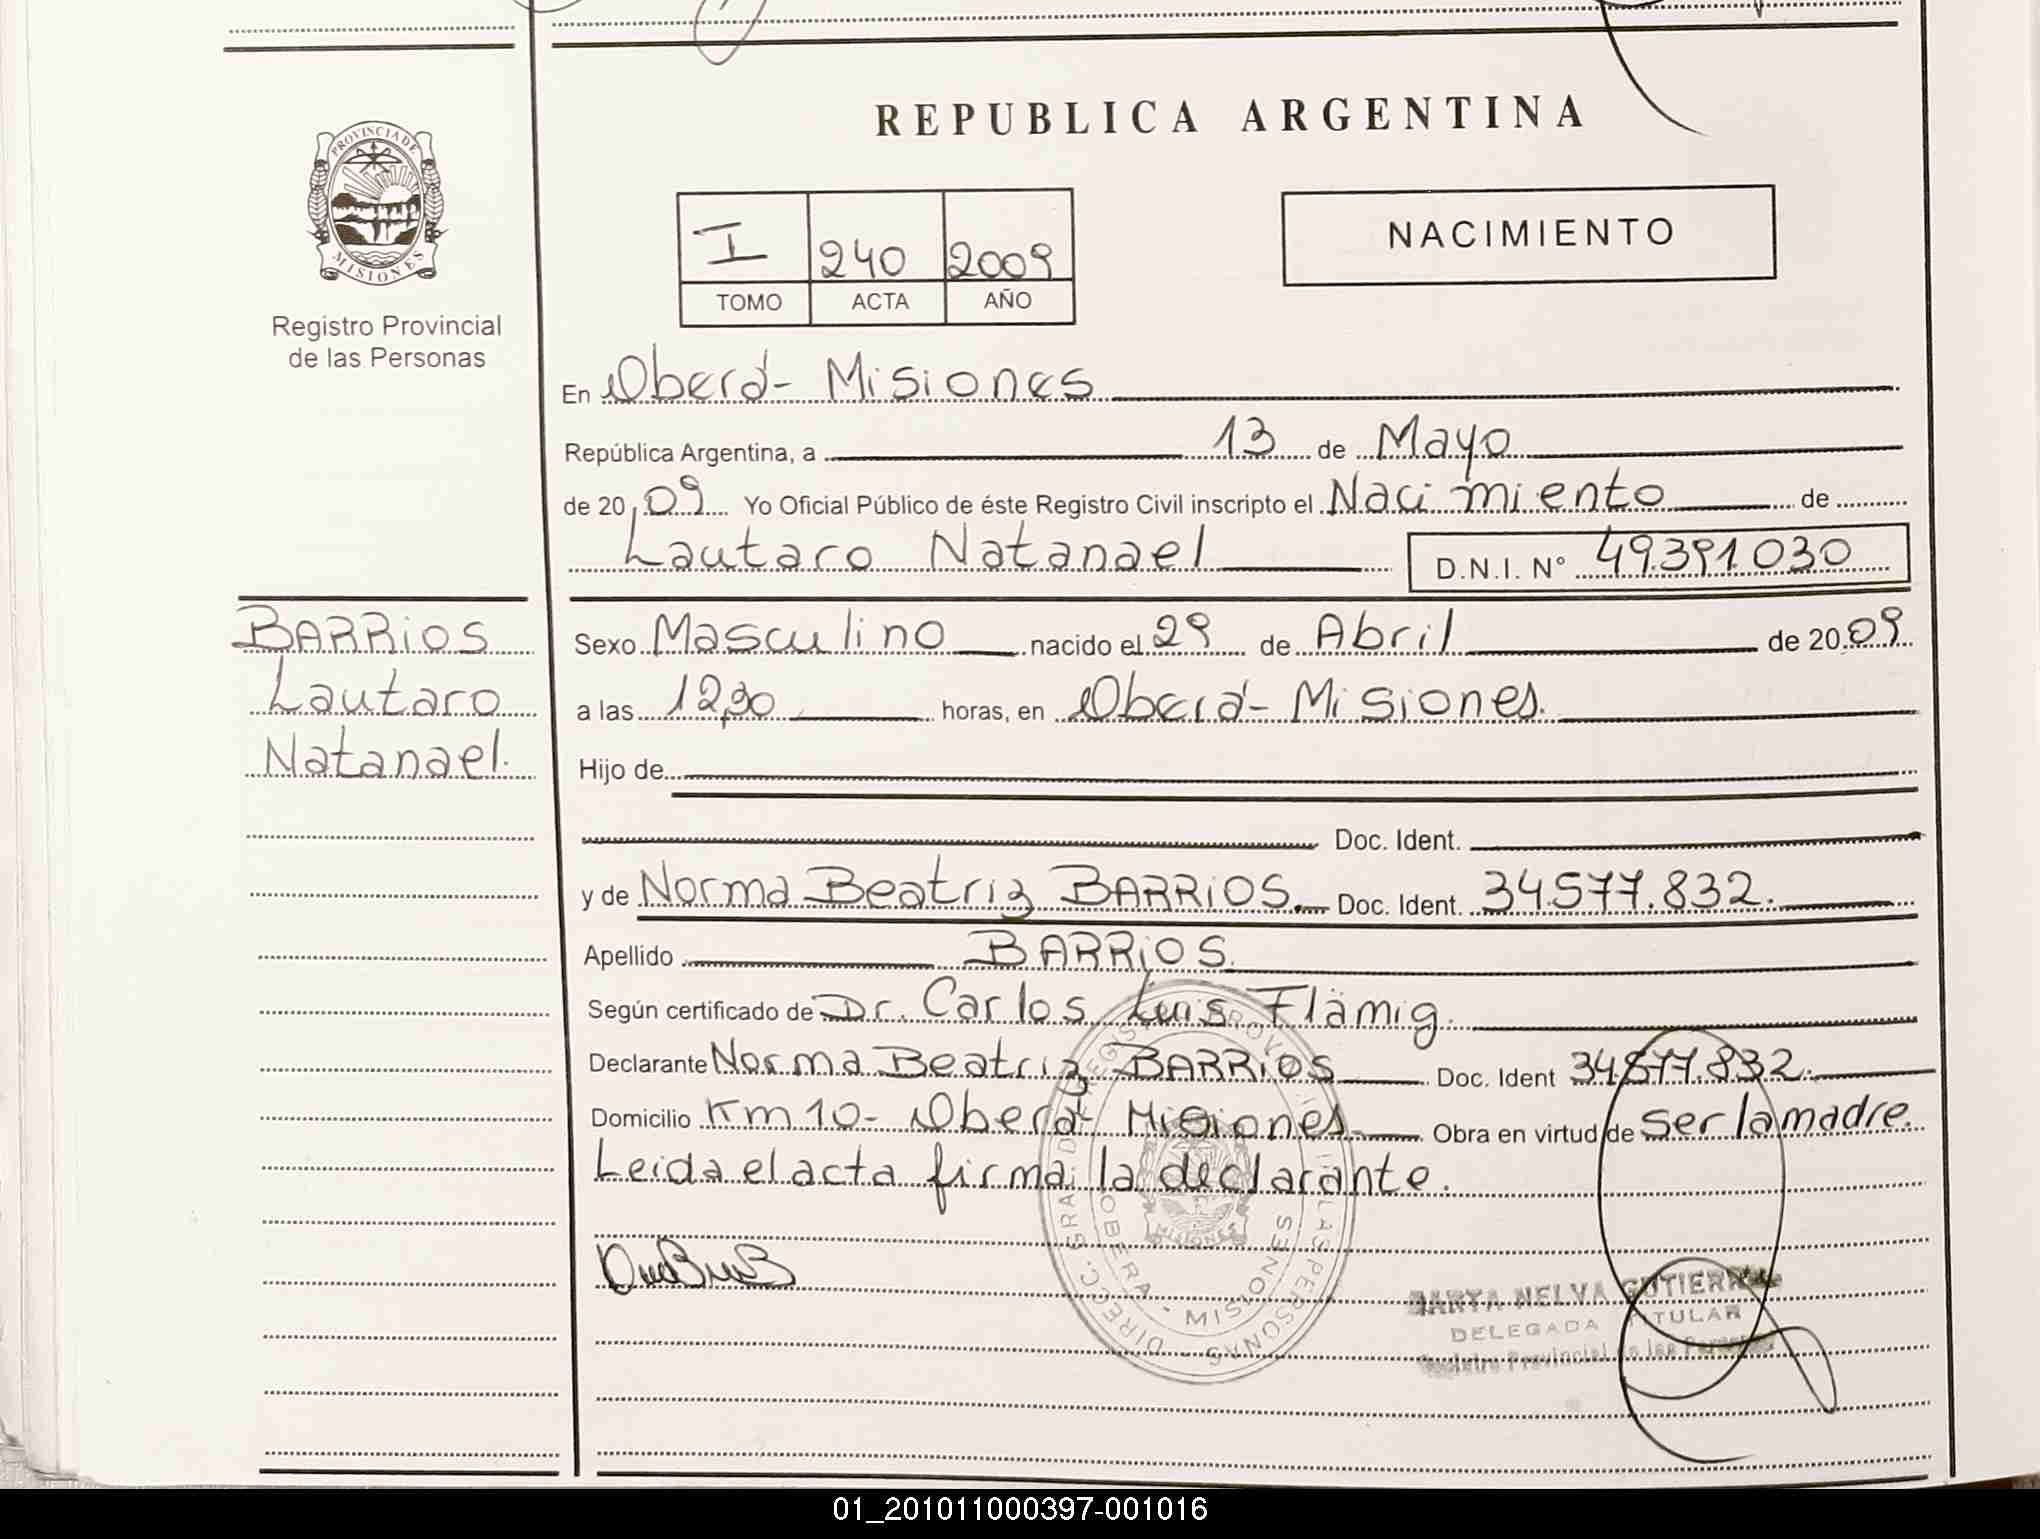 REPUBLICA ARGENTINA
PROVINCIA DE
MISIONES
Registro Provincial
de las Personas
I 240 2009
TOMO ACTA AÑO
NACIMIENTO
En Oberá- Misiones
República Argentina, a 13 de Mayo
de 20 09 Yo Oficial Público de éste Registro Civil inscripto el Nacimiento de
Lautaro Natanael D.N.I. N° 49.391.030
BARRiOS
Lautaro
Natanael.
Sexo Masculino nacido el 29 de Abril de 20 09
a las 12,30 horas, en Oberá- Misiones.
Hijo de
Doc. Ident.
y de Norma Beatriz BARRiOS. Doc. Ident. 34.577.832.
Apellido BARRiOS.
Según certificado de Dr. Carlos Luis Flämig.
Declarante Norma Beatriz BARRiOS Doc. Ident 34.577.832.
Domicilio Km 10- Oberá- Misiones Obra en virtud de ser la madre.
Leida el acta firma la declarante.
OBERA - MISIONES
MISIONES
NELVA
DELEGADA TITULAR
Registro Provincial de las
01_201011000397-001016